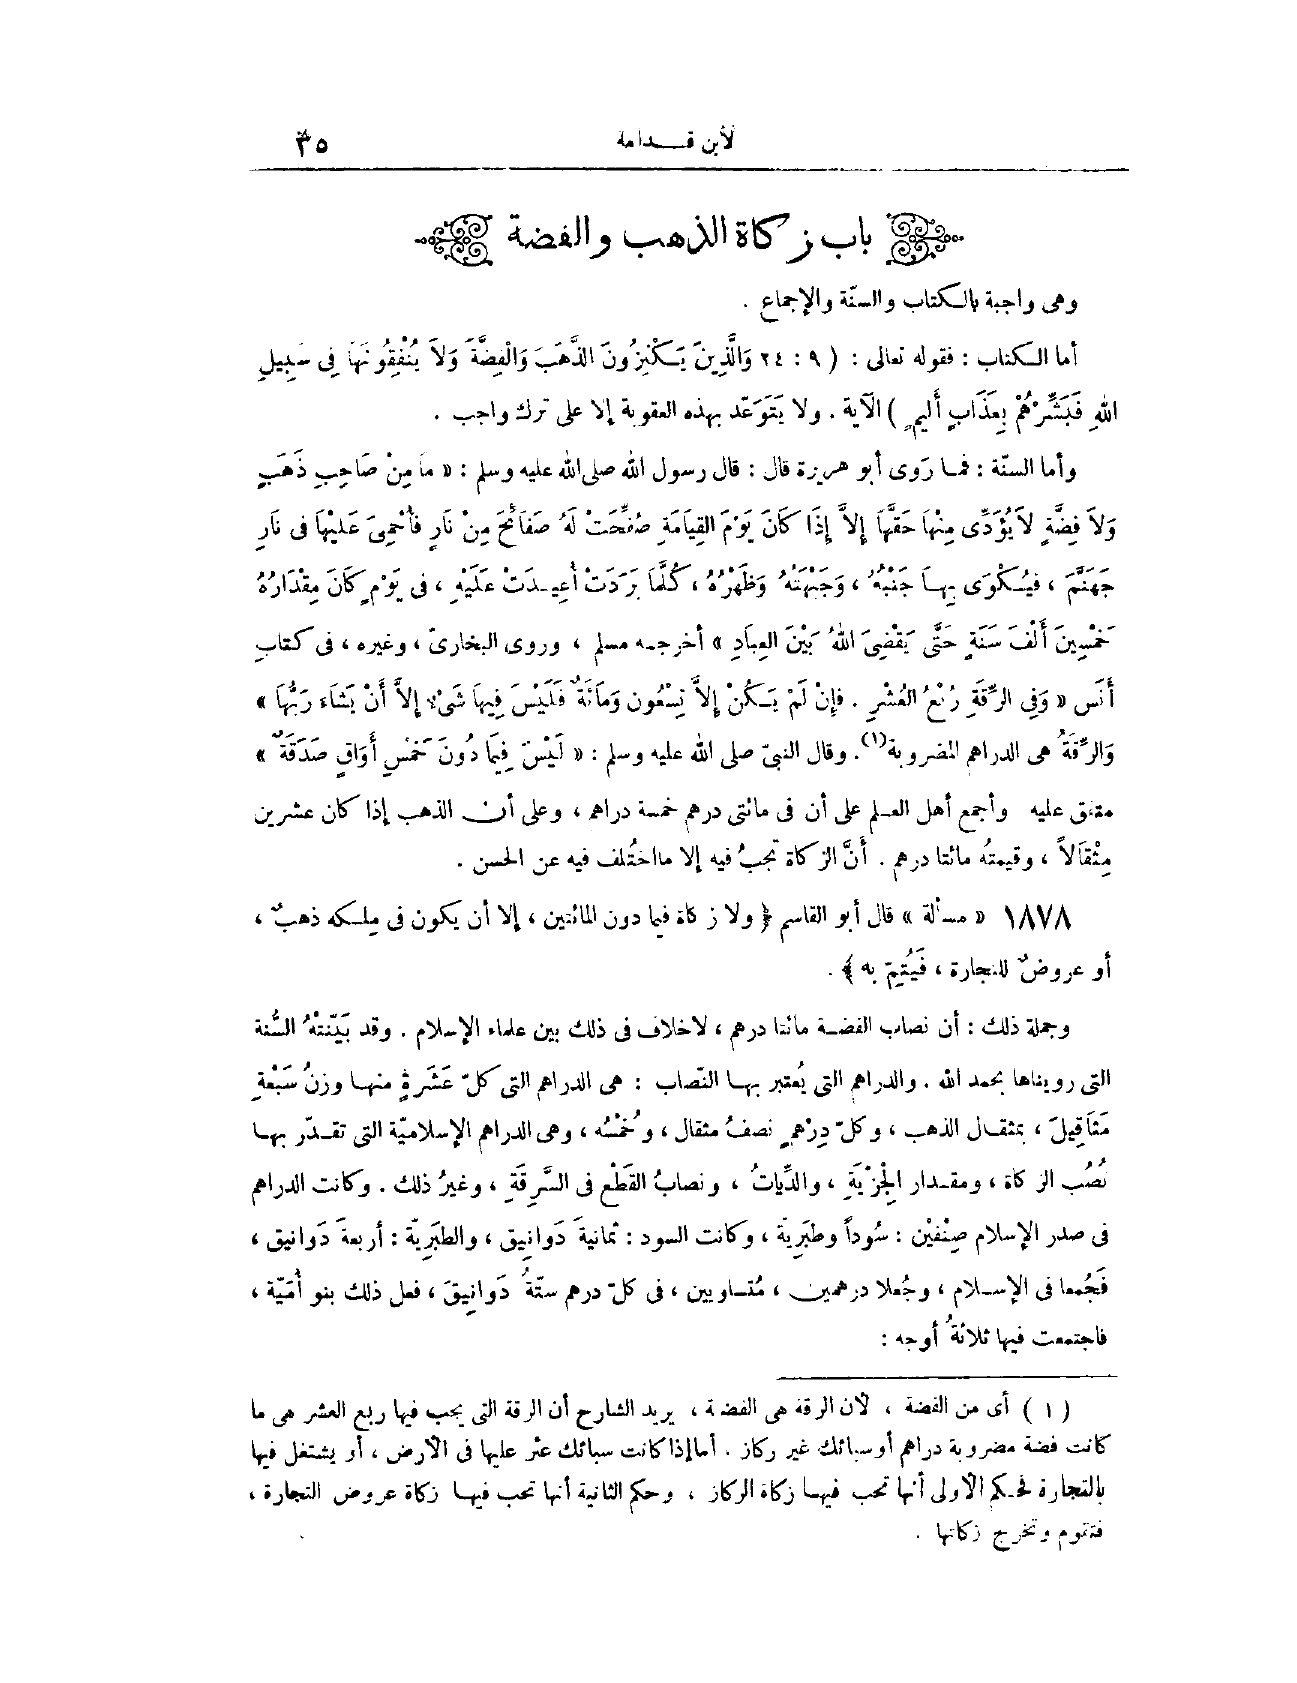 لابن قدامة ٣٥
باب زكاة الذهب والفضة
وهى واجبة بالكتاب والسنّة والإجماع .
أما الكتاب : فقوله تعالى : ( ٩ : ٢٤ وَالَّذِينَ يَكْنِزُونَ الذَّهَبَ وَالْفِضَّةَ وَلاَ يُنْفِقُونَهَا فِى سَبِيلِ
اللهِ فَبَشِّرْهُمْ بِعَذَابٍ أَليمٍ ) الآية . ولا يَتَوَعّد بهذه العقوبة إلا على ترك واجب .
وأما السنّة : فما رَوى أبو هريرة قال : قال رسول الله صلى الله عليه وسلم : « مَا مِنْ صَاحِبِ ذَهَبٍ
وَلاَ فِضَّةٍ لاَ يُؤَدِّى مِنْهَا حَقَّهَا إِلاَّ إِذَا كَانَ يَوْمَ القِيَامَةِ صُفِّحَتْ لَهُ صَفَائِحَ مِنْ نَارٍ فَأُحْمِىَ عَلَيْهَا فى نَارِ
جَهَنَّمَ ، فَيُكْوَى بِهَا جَنْبُهُ ، وَجَبْهَتُهُ وَظَهْرُهُ ، كُلَّمَا بَرَدَتْ أُعِيدَتْ عَلَيْهِ ، فى يَوْمٍ كَانَ مِقْدَارُهُ
خَمْسِينَ أَلْفَ سَنَةٍ حَتَّى يَقْضِىَ اللهُ بَيْنَ العِبَادِ » أخرجه مسلم ، وروى البخارىّ ، وغيره ، فى كتابِ
أَنَس « وَفِى الرِّقَةِ رُبْعُ العُشْرِ . فَإِنْ لَمْ يَكُنْ إِلاَّ تِسْعُون وَمَائَةٌ فَلَيْسَ فِيهَا شَىْءٌ إِلاَّ أَنْ يَشَاءَ رَبُّهَا »
وَالرِّقَةُ هى الدراهم المضروبة(١). وقال النبىّ صلى الله عليه وسلم : « لَيْسَ فِيمَا دُونَ خَمْسِ أَوَاقٍ صَدَقَةٌ »
متفق عليه وأجمع أهل العلم على أن فى مائتى درهم خمسة دراهم ، وعلى أن الذهب إذا كان عشرين
مِثْقَالاً ، وقيمتهُ مائتا درهم . أَنَّ الزكاة تجبُ فيه إلا ما اختُلف فيه عن الحسن .
١٨٧٨ « مسألة » قال أبو القاسم ﴿ ولا زكاة فيما دون المائتين ، إلا أن يكون فى مِلكه ذهبٌ ،
أو عروضٌ للتجارة ، فَيُتِمّ به ﴾ .
وجملة ذلك : أن نصاب الفضة مائتا درهم ، لاخلاف فى ذلك بين علماء الإسلام . وقد بَيّنَتْهُ السُّنة
التى رويناها بحمد الله . والدراهم التى يُعتبر بها النّصاب : هى الدراهم التى كلّ عَشَرةٍ منها وزنُ سَبْعةِ
مَثَاقِيلَ ، بمثقال الذهب ، وكلّ دِرْهمٍ نصفُ مثقال ، وخُمْسُه ، وهى الدراهم الإسلاميّة التى تقدّر بها
نُصُب الزكاة ، ومقدار الجِزْيَةِ ، والدِّياتُ ، ونصابُ القَطْعِ فى السَّرِقَةِ ، وغيرُ ذلك . وكانت الدراهم
فى صدر الإسلام صِنْفَيْن : سُوداً وطَبَرِيّة ، وكانت السود : ثمانيةَ دَوانِيق ، والطبَرِيّة : أربعةَ دَوانيق ،
فَجُمعا فى الإسلام ، وجُعلا درهمين ، مُتساويين ، فى كلّ درهم ستّةُ دَوانِيقَ ، فعل ذلك بنو أُمَيّة ،
فاجتمعت فيها ثلاثةُ أوجه :
( ١ ) أى من الفضة ، لان الرقة هى الفضة ، يريد الشارح أن الرقة التى يجب فيها ربع العشر هى ما
كانت فضة مضروبة دراهم أو سبائك غير ركاز . أما إذا كانت سبائك عثر عليها فى الارض ، أو يشتغل فيها
بالتجارة فحكم الاولى أنها تجب فيها زكاة الركاز ، وحكم الثانية أنها تجب فيها زكاة عروض التجارة ،
فتقوم وتخرج زكاتها .